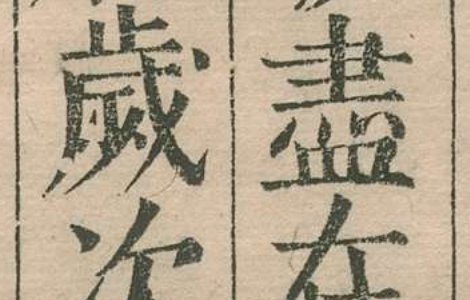 盡在
歲次